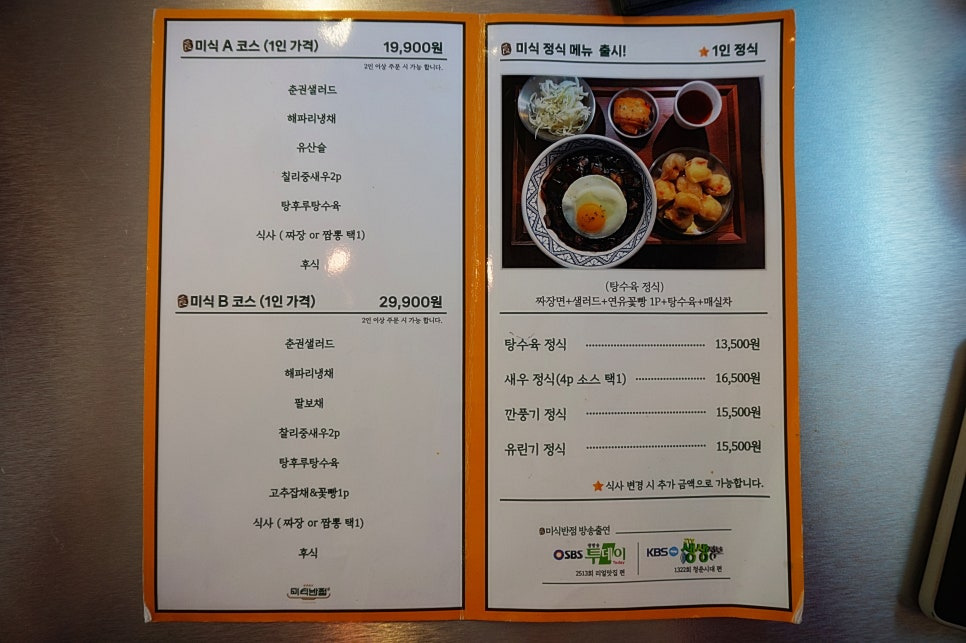 미식 A 코스 (1인 가격) 19,900원
2인 이상 주문 시 가능 합니다.
춘권샐러드
해파리냉채
유산슬
칠리중새우2p
탕후루탕수육
식사 ( 짜장 or 짬뽕 택1)
후식
미식 B 코스 (1인 가격) 29,900원
2인 이상 주문 시 가능 합니다.
춘권샐러드
해파리냉채
팔보채
찰리중새우2p
탕후루탕수육
고추잡채&꽃빵1p
식사 ( 짜장 or 짬뽕 택1)
후식
미식반점
미식 정식 메뉴 출시! ★1인 정식
(탕수육 정식)
짜장면+샐러드+연유꽃빵 1P+탕수육+매실차
탕수육 정식 13,500원
새우 정식(4p 소스 택1) 16,500원
깐풍기 정식 15,500원
유린기 정식 15,500원
★식사 변경 시 추가 금액으로 가능합니다.
미식반점 방송출연
SBS 투데이 KBS 생생정보
2513회 리얼맛집 편 1322회 청춘시대 편